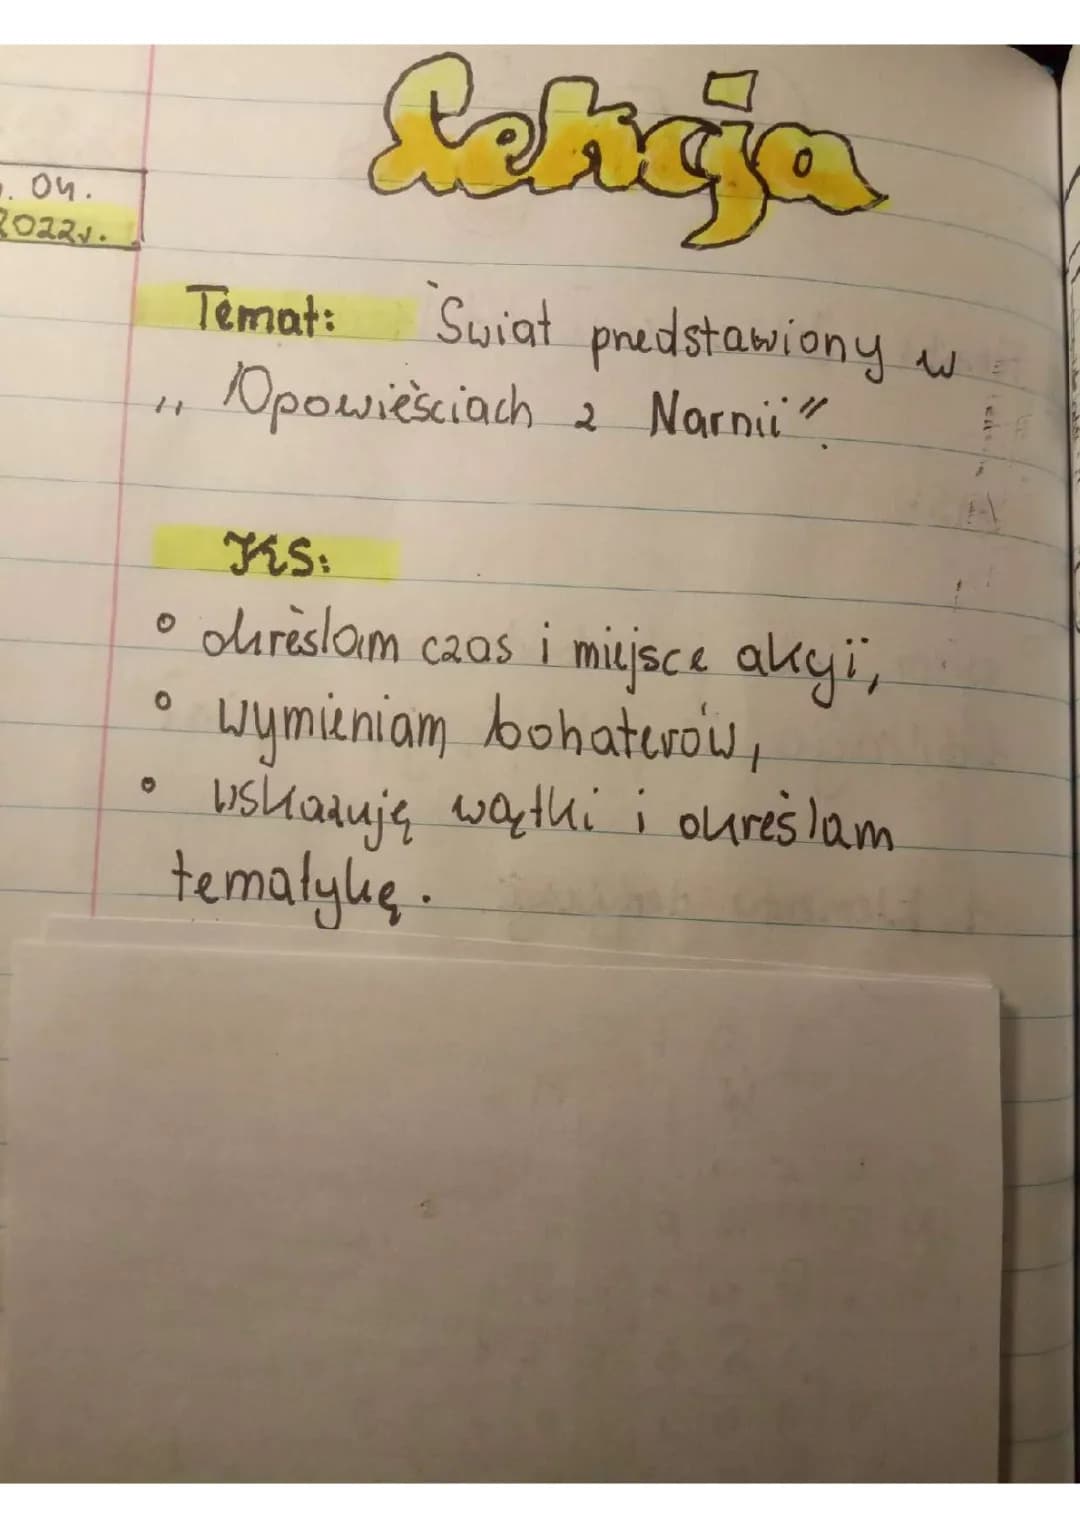 Lekcja
04.
2022r.
Temat: Świat przedstawiony w
„Opowieściach z Narnii".
KS:
• określam czas i miejsce akcji,
• wymieniam bohaterów,
• wskazuję wątki i określam
tematykę.